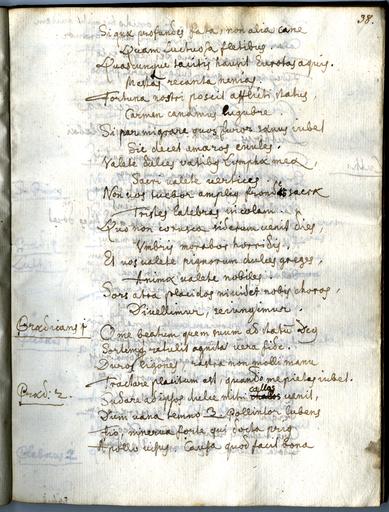 38.
Siqua profundis fata, non alia cane
Quam luctuosa flebibus.
Quascunque tacitis hausit Eurotas aquis.
Mæstas recanta nenias.
Fortuna nostri poscit afflicti status,
Carmen canamus lugubre
Si par migrare quos furor sævus iubet
Sic decet amaros exules.
Valete dulces vatibus lymphæ meæ,
Sacri valete vertices
Non vos tuebor amplius frondis sacræ
Tristes latebras incolam.
Quo non corusca siderum venit dies,
Umbris morabor horridis.
Et vos valete pignorum dulces greges,
Animæ valete nobiles.
Sors atra placidos invidet nobis choros,
Divellimur, reiungimur.
O me beatum quem suum ad statu
Sortemq. retulit agnita vera fide.
Duros ligones, rastra non molli manu
Tractare placitum est, quando me pietas iubet.
Sudare dulce mihi callos venit,
Dum vana temno Pollinctor lubens
minerva forte qui docta
Apollo Causa quod facit bona